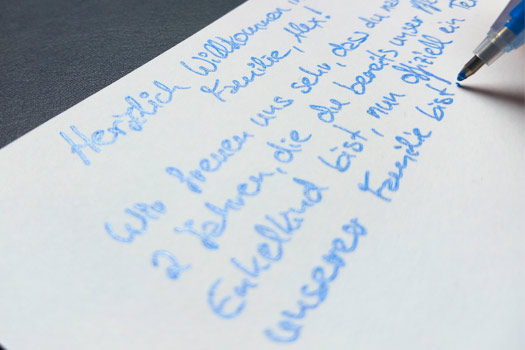 Herzlich Willkommen in
Familie, Alex!
Wir freuen uns sehr, dass du nach
2 Jahren, die du bereits unser
Enkelkind bist, nun offiziell ein Teil
unserer Familie bist.